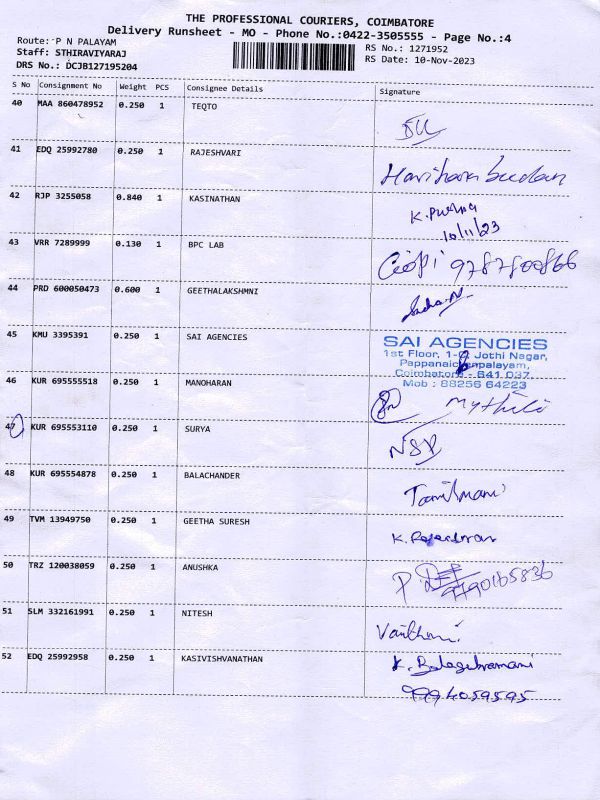 THE PROFESSIONAL COURIERS, COIMBATORE
Delivery Runsheet - MO - Phone No.:0422-3505555 - Page No.:4
Route: P N PALAYAM
RS No.: 1271952
Staff: STHIRAVIYARAJ
RS Date: 10-Nov-2023
DRS No.: DCJB127195204
S No Consignment No Weight PCS Consignee Details Signature
40 MAA 860478952 0.250 1 TEQTO
41 EDQ 25992780 0.250 1 RAJESHVARI
Harihara
42 RJP 3255058 0.840 1 KASINATHAN
K. Purna
10/11/23
43 VRR 7289999 0.130 1 BPC LAB
Gopi 9787800866
44 PRD 600050473 0.600 1 GEETHALAKSHMNI
45 KMU 3395391 0.250 1 SAI AGENCIES
SAI AGENCIES
1st Floor, Jothi Nagar,
Coimbatore 641 037.
Mob : 88256 64223
46 KUR 695555518 0.250 1 MANOHARAN
Mythili
47 KUR 695553110 0.250 1 SURYA
48 KUR 695554878 0.250 1 BALACHANDER
Tamilmani
49 TVM 13949750 0.250 1 GEETHA SURESH
K. Rajeshwari
50 TRZ 120038059 0.250 1 ANUSHKA
51 SLM 332161991 0.250 1 NITESH
52 EDQ 25992958 0.250 1 KASIVISHVANATHAN
K. Balasubramani
9994059595